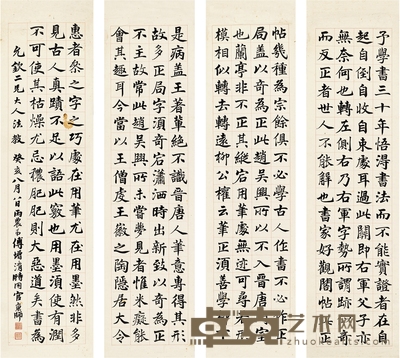 予學書三十年悟得書法而不能實證者在自
起自倒自收自束處耳過此關即右軍父子亦
無奈何也轉左側右乃右軍字勢所謂跡奇
而反正者世人不能解也書家好觀閣帖正
帖幾種為宗餘俱不必學古人作書不必作正
局蓋以奇為正此趙吳興所以不入晉唐室
也蘭亭非不正其縱宕用筆處無迹可尋若形
模相似轉去轉遠柳公權云筆正須善學柳
是病蓋王著輩絕不識晉唐人筆意專得其形
故多正局須奇宕瀟洒時出新致以奇為正
不主故常此趙吳興所未嘗夢見者惟米癡能
會其趣耳今當以王僧虔王徽之陶隱居大令
惠者參之字之巧處在用筆尤在用墨然非多
見古人真蹟不足以語此竅也用墨須使有潤
不可使其枯燥尤忌穠肥肥則大惡道矣書為
允欽二兄大人法教 癸亥八月八日雨農弟傅增時同官京師
艺术网